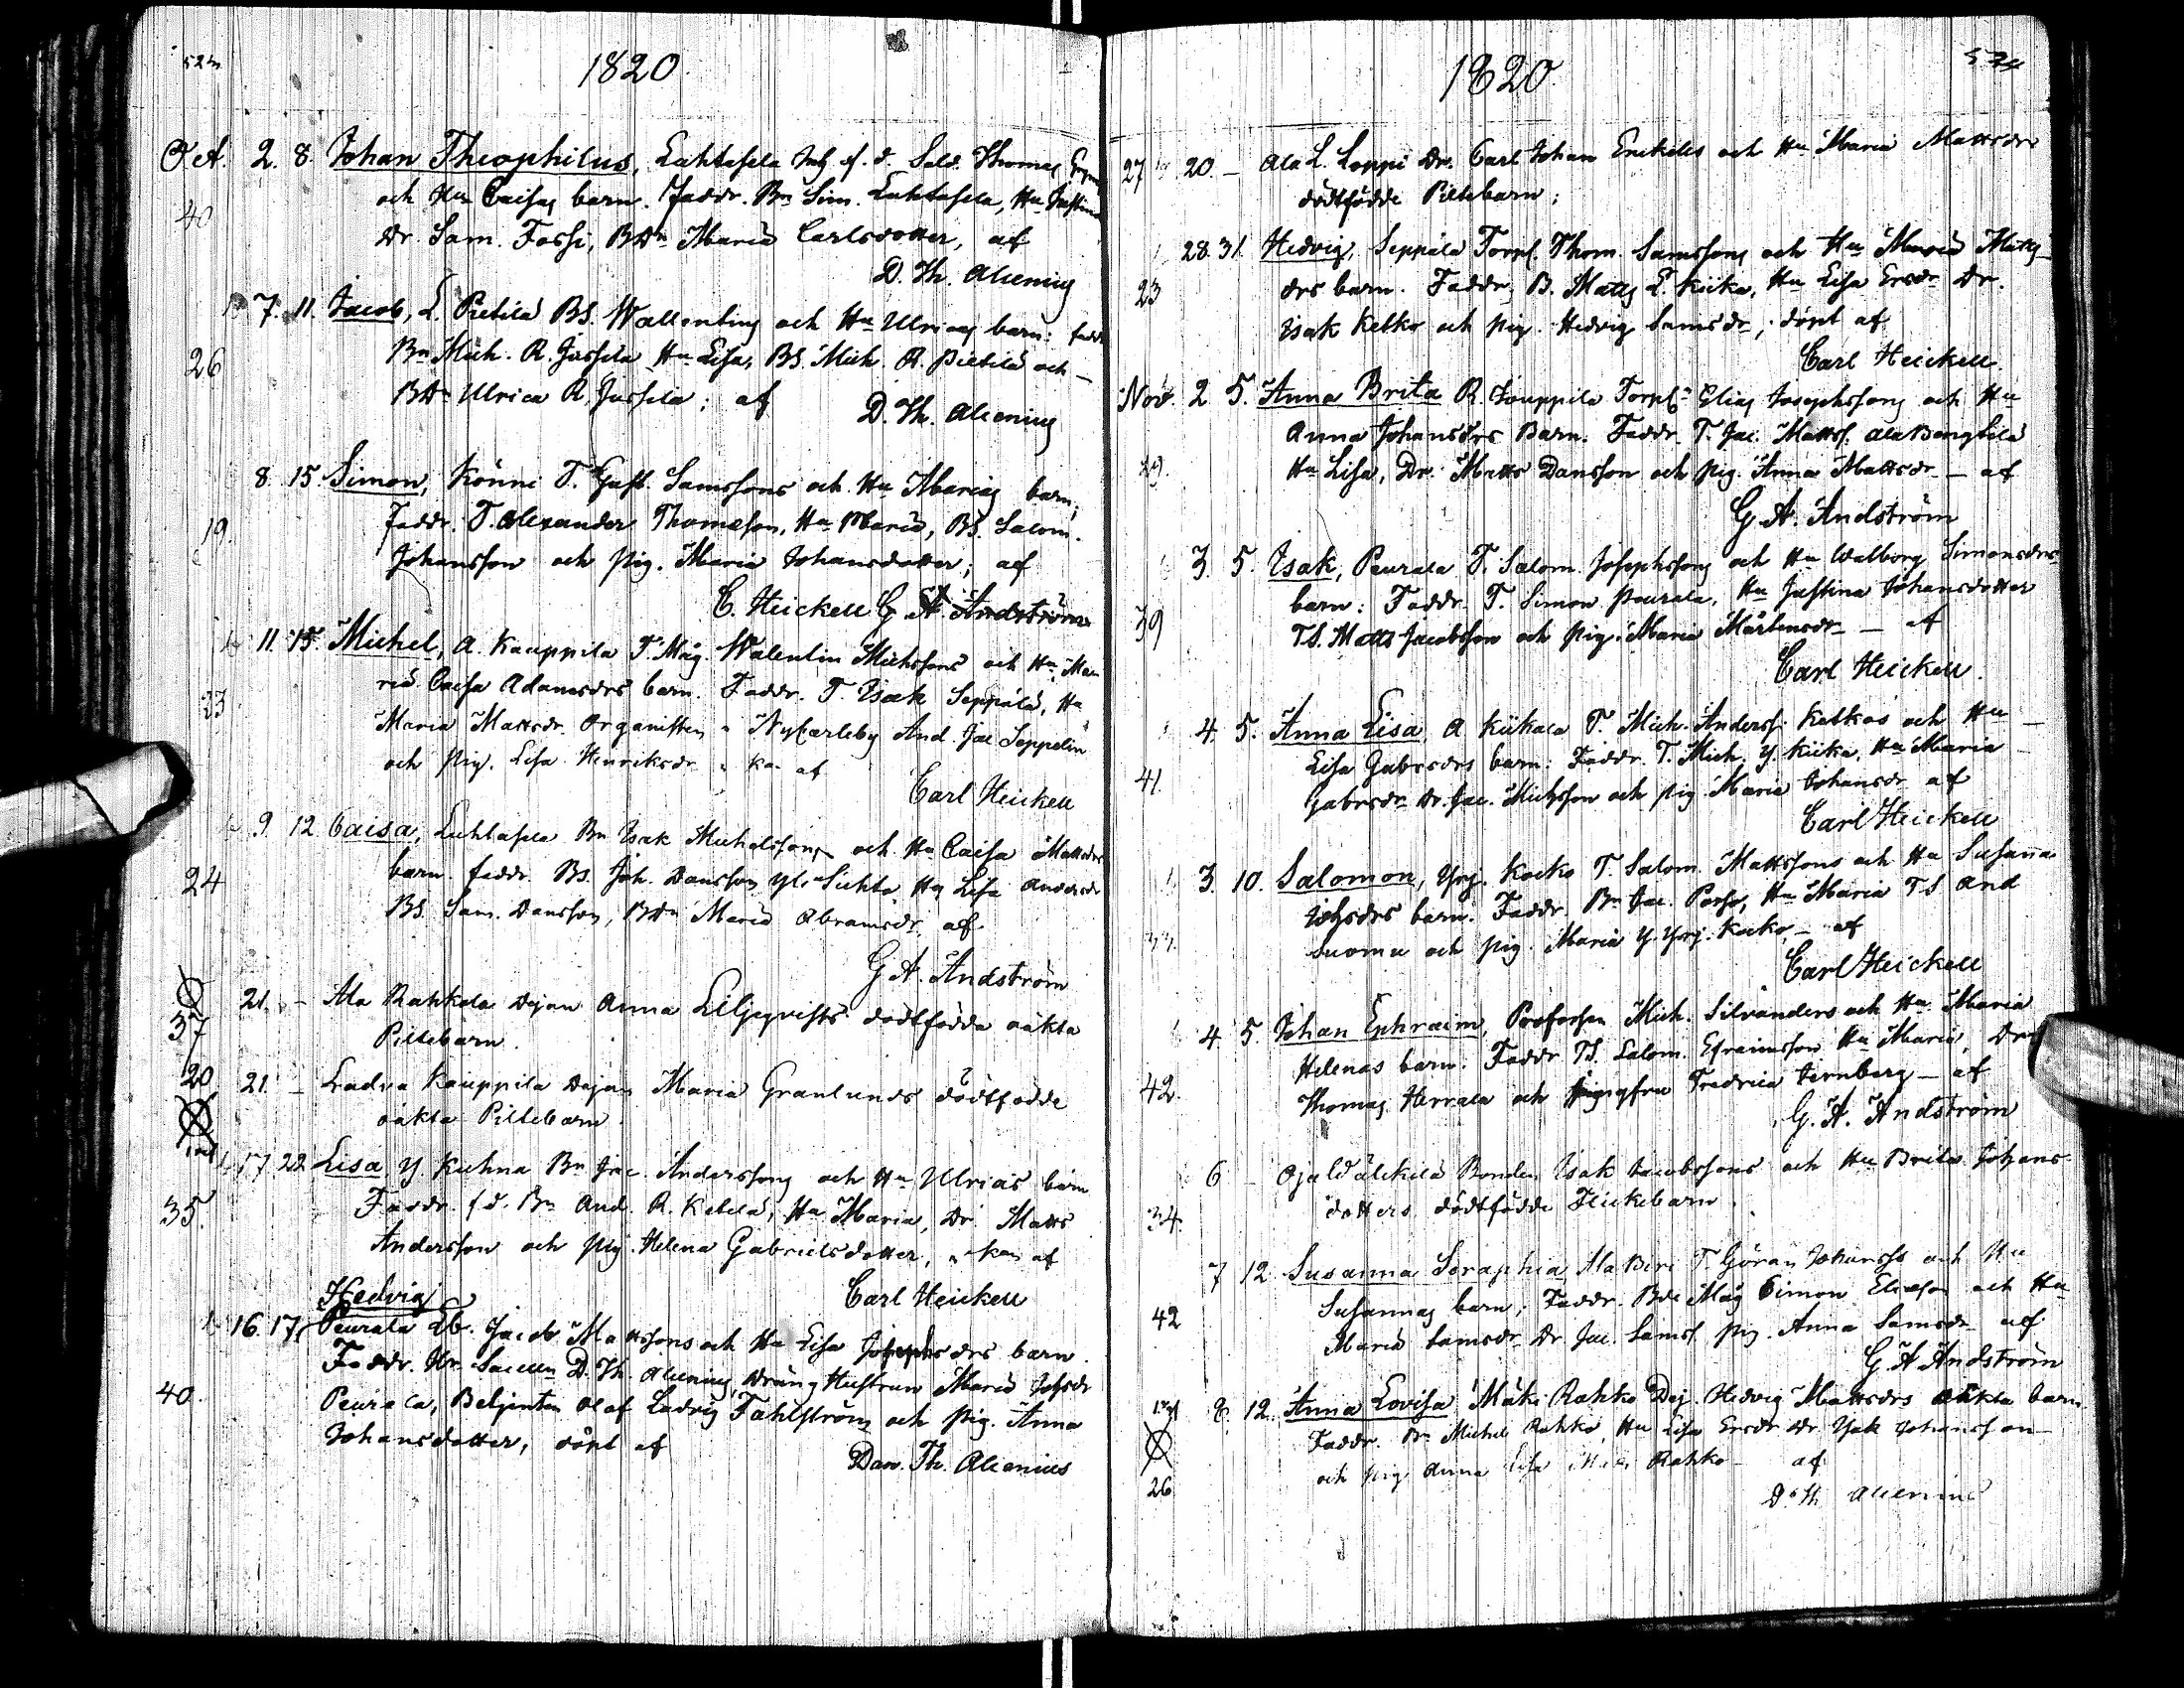 523
1820
Oct. 2. 8. Johan Theophilus, Luhtasela Inh. f. d. Sold. Thomas
40
och Hu Caisas barn. Faddr. Bn Sim. Luhtasela, Hu Justina
Dr. Sam. Fossi, BDr Maria Carlsdotter, af
D. Th. Alcenius
7. 11. Jacob, L. Pietilä BS. Wallentins och Hu Ulricas barn: fadd
26
Bn Mich. R. Jussila Hu Lisa, BS. Mich. R. Pietilä och —
BDr Ulrica R. Jussila; af
D. Th. Alcenius
8. 15. Simon, Könni T. Gust. Samssons och Hu Marias barn,
19.
Faddr. T. Alexander Thomasson, Hu Maria, BS. Salom.
Johansson och pig. Maria Johansdotter; af
C. Heickell G A Andström
11. 15. Michel, A. Kauppila T. Måg. Walentin Michssons och Hu Ma
23
ria Caisa Adamsdrs barn. Faddr. T. Isak Seppälä, Hu
Maria Mattsdr. Organisten i NyCarleby And. Jac Seppelin
och pig. Lisa Henriksdr af
Carl Heickell
9. 12 Caisa, Luhtasela Bn Isak Michelssons och Hu Caisa Mattsdrs
24
barn. faddr. BS. Joh. Dansson Yli Sichto, Hu Lisa Andersdr
BS. Sam. Dansson, BDr Maria Abramsdr. af
G A. Andström
21. — Ala Rahkola Dejan Anna Liljeqvists dödtfödde oäkta
37
Piltebarn.
20
21. — Ladva Kauppila Dejan Maria Granlunds dödtfödde
oäkta Piltebarn.
17. 22 Lisa Y. Kuhna Bn Jac. Anderssons och Hu Ulricas barn
35.
Faddr. f. d. Bn And. R. Ketola, Hu Maria, Dr. Matts
Andersson och pig. Helena Gabrielsdotter, af
Carl Heickell
Hedvig
16. 17, Peurala Lb. Jacob Mattssons och Hu Lisa Josephsdrs barn.
Faddr. Hr. D. Th. Alcenius, Dräng Hustrun Maria Johsdr
40.
Peurala, Betjenten Olof Ludvig Fahlström och pig. Anna
Johansdotter, döpt af
Dan. Th. Alcenius
524
1820
27 20 — Ala L. Loppi Dr. Carl Johan Erickels och Hu Maria Mattsdrs
dödtfödde Piltebarn;
28. 31. Hedvig, Seppälä Torp. Thom. Samssons och Hu Maria Matts
23
drs barn. Faddr. B. Matts L. Kiika, Hu Lisa Ersdr Dr.
Isak Ketko och pig. Hedvig Samsdr; döpt af
Carl Heickell
Nov. 2 5. Anna Brita R. Jouppila Torp. Elias Josephssons och Hu
Anna Johansdrs Barn. Faddr. T. Jac. Mattss. Ala Bengtilä
29.
Hu Lisa, Dr. Matts Dansson och pig. Anna Mattsdr — af
G. A. Andström
3. 5. Isak, Peurala T. Salom. Josephssons och Hu Walborg Simonsdrs
barn: Faddr. T. Simon Peurala, Hu Justina Johansdotter
39
TS. Matts Jacobsson och pig. Maria Mårtensdr — af
Carl Heickell.
4. 5. Anna Lisa, A Kiikala T. Mich. Anderss. Ketkos och Hu —
Lisa Gabrsdrs barn: Faddr. T. Mich. Y. Kiika, Hu Maria
41.
Gabrsdr Dr. Jac. Michsson och pig. Maria Johansdr af
Carl Heickell
3. 10. Salomon, Yrj. Kocko T. Salom. Mattssons och Hu Susanna
Johsdrs barn. Faddr. Bn Jac. Passo, Hu Maria TS And
33.
Suomu och pig. Maria Y. Yrj. Kocko, — af
Carl Heickell
4. 5. Johan Ephraim, Profossen Mich. Silvanders och Hu Maria
Helenas barn. Faddr. TS. Salom. Efraimsson Hu Maria, Dr
42.
Thomas Herrala och jungfru Fredrica Jernberg — af
G. A. Andström
6 — Oja Wälckilä Bonden Isak Jacobssons och Hu Brita Johans
34.
dotters dödtfödde Flickebarn.
7 12. Susanna Seraphia, Ala Beri T. Göran Johanss och Hu
42
Susannas barn; Faddr. Bde Måg Simon Eliasson och Hu
Maria Samsdr Dr Jac. Samss. pig. Anna Samsdr af
G A Andström
8. 12. Anna Lovisa Mäki Rahko Dej. Hedvig Mattsdrs oäkta barn.
Faddr. Bn Michel Rahko, Hu Lisa Ersdr Dr. Isak Johansson
26
och pig Anna Lisa Rahko af
D. Th Alcenius